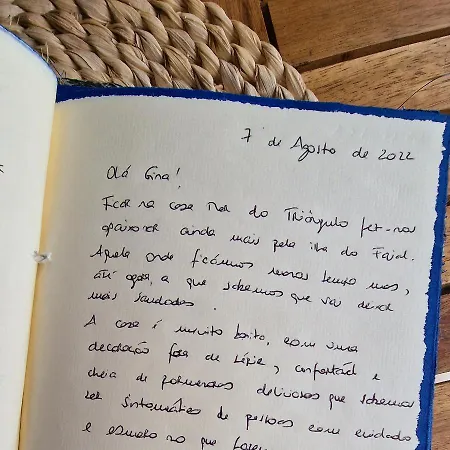 7 de Agosto de 2022
Olá Gina!
Ficar na casa Ilha do Triângulo fez-nos
apaixonar ainda mais pela ilha do Faial.
Aquela onde ficámos menos tempo mas,
até agora, a que sabemos que vai deixar
mais saudades.
A casa é muito bonita, com uma
decoração fora de série, confortável e
cheia de pormenores deliciosos que sabemos
ser sintomático de pessoas com cuidado
e esmero no que fazem